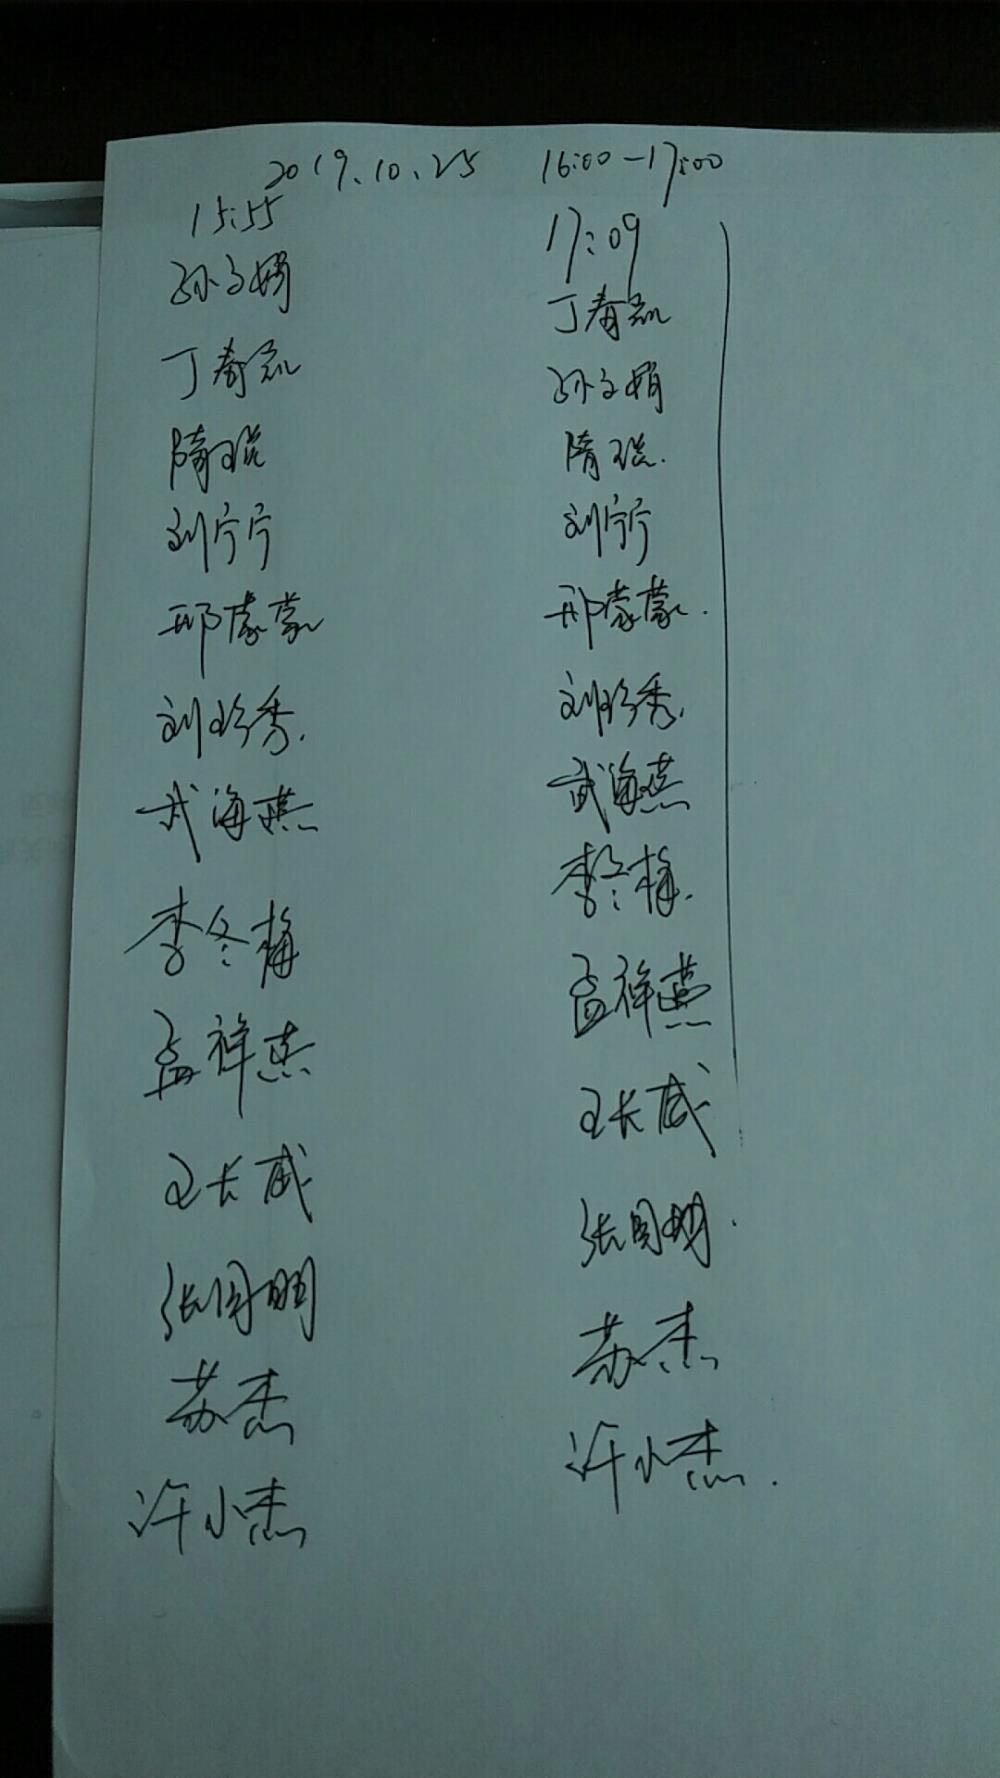 2019.10.25 16:00-17:00
15:55
孙文娟
丁春
隋
刘宁宁
邢蒙蒙
刘珍秀.
武海燕
李冬梅
孟祥燕
王长威
张国明
苏杰
许小杰
17:09
丁春
孙文娟
隋
刘宁宁
邢蒙蒙.
刘珍秀.
武海燕
李冬梅.
孟祥燕
王长威
张国明.
苏杰
许小杰.